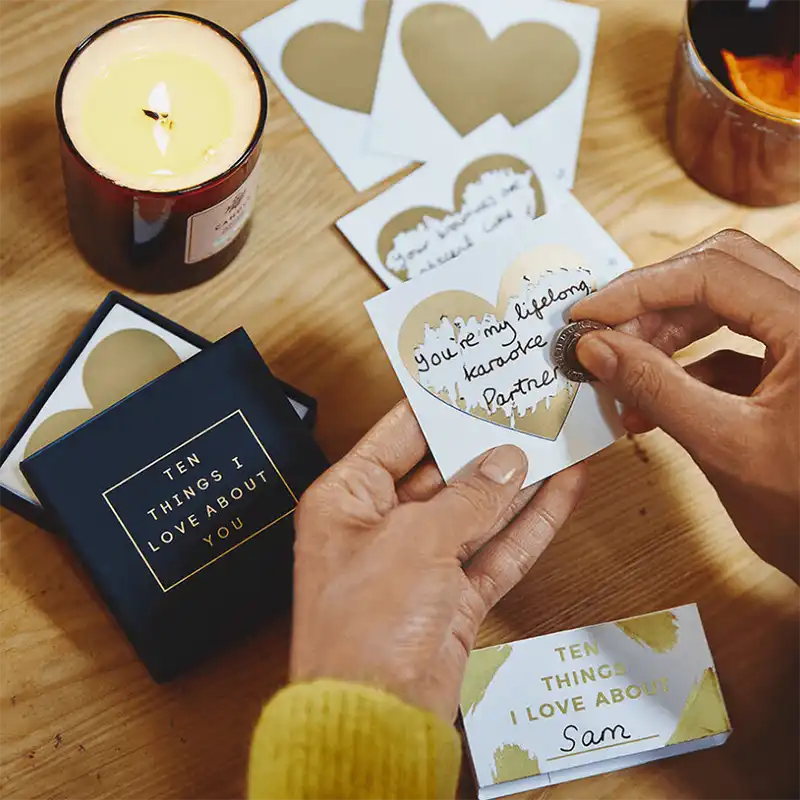 your
You're my lifelong
karaoke
Partner
TEN
THINGS I
LOVE ABOUT
YOU
TEN
THINGS
I LOVE ABOUT
Sam